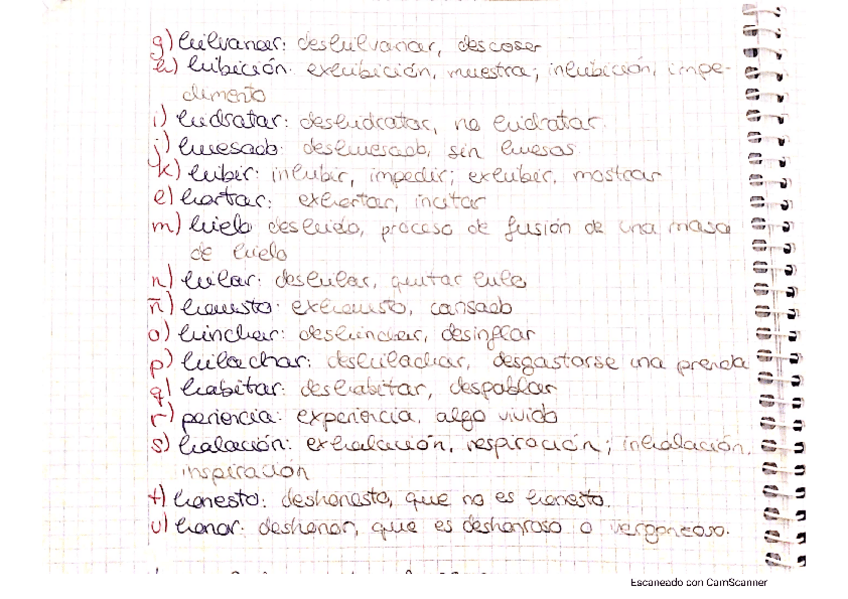 g) hilvanar: deshilvanar, descoser
h) hibición: exhibición, muestra; inhibición, impe-
dimento
i) hidratar: deshidratar, no hidratar.
j) huesado: deshuesado, sin huesos
k) hibir: inhibir, impedir; exhibir, mostrar
l) hortar: exhortar, incitar
m) hielo: deshielo, proceso de fusión de una masa
de hielo
n) hilar: deshilar, quitar hilo
ñ) hausto: exhausto, cansado
o) hinchar: deshinchar, desinflar
p) hilachar: deshilachar, desgastarse una prenda
q) habitar: deshabitar, despoblar
r) periencia: experiencia, algo vivido
s) halación: exhalación, respiración; inhalación,
inspiración
t) honesto: deshonesto, que no es honesto.
u) honor: deshonor, que es deshonroso o vergonzoso.
Escaneado con CamScanner